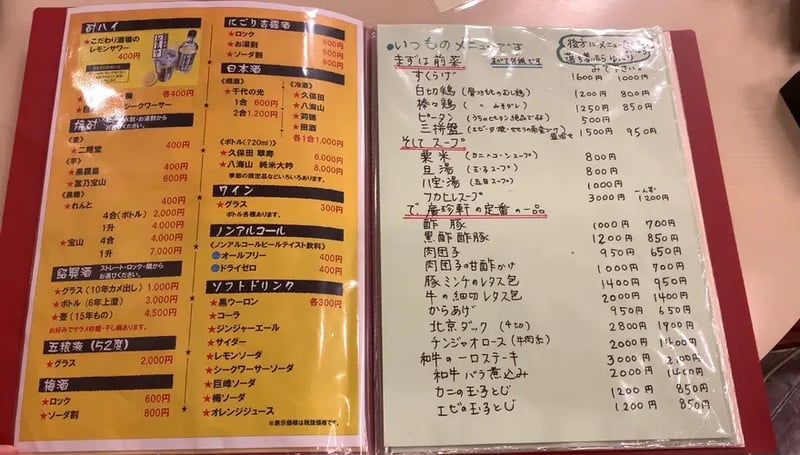 酎ハイ
★こだわり酒場の
レモンサワー
400円
梅 各400円
シークワーサー
焼酎
お選びください。
《麦》
★二階堂 400円
《芋》
★黒霧島 400円
★富乃宝山 600円
《黒糖》
★れんと 400円
4合(ボトル) 2,000円
1升 4,000円
★宝山 4合 4,000円
1升 7,000円
紹興酒 ストレート・ロック・燗から
お選びください。
★グラス(10年カメ出し) 1,000円
★ボトル(6年上澄) 3,000円
★壺(15年もの) 4,500円
お好みでザラメ砂糖・干し梅あります。
五粮液(52度)
★グラス 2,000円
梅酒
★ロック 600円
★ソーダ割 800円
にごり杏露酒
★ロック 600円
★お湯割 600円
★ソーダ割 800円
日本酒
《燗酒》
★千代の光
1合 600円
2合 1,200円
《冷酒》
★久保田
★八海山
★田酒
各1合 1,000円
《ボトル(720ml)》
★久保田 翠寿 6,000円
★八海山 純米大吟 8,000円
季節の限定品などいろいろあります。
ワイン
★グラス 300円
ボトル各種あります。
ノンアルコール
《ノンアルコールビールテイスト飲料》
オールフリー 400円
ドライゼロ 400円
ソフトドリンク
★黒ウーロン 各300円
★コーラ
★ジンジャーエール
★サイダー
★レモンソーダ
★シークワーサーソーダ
★巨峰ソーダ
★梅ソーダ
★オレンジジュース
※表示価格は税抜価格です。
いつものメニューです
まずは前菜
すくらげ 1600円 1000円
白切鶏 1200円 800円
棒々鶏 1250円 850円
ピータン 500円
三拼盤 1500円 950円
そして スープ
粟米 (カニトコーンスープ) 800円
旦湯 (玉子スープ) 800円
八宝湯 (五目スープ) 1000円
フカヒレスープ 3000円 1200円
で、廣珍軒の定番の一品
酢豚 1000円 700円
黒酢酢豚 1200円 850円
肉団子 950円 650円
肉団子の甘酢かけ 1000円 700円
豚ミンチのレタス包 1400円 950円
牛の細切レタス包 2000円 1400円
からあげ 950円 650円
北京ダック 2800円 1900円
チンジャオロース(牛肉糸) 2000円 1400円
和牛の一口ステーキ 3000円 2100円
和牛バラ煮込み 2000円 1400円
カニの玉子とじ 1200円 850円
エビの玉子とじ 1200円 850円